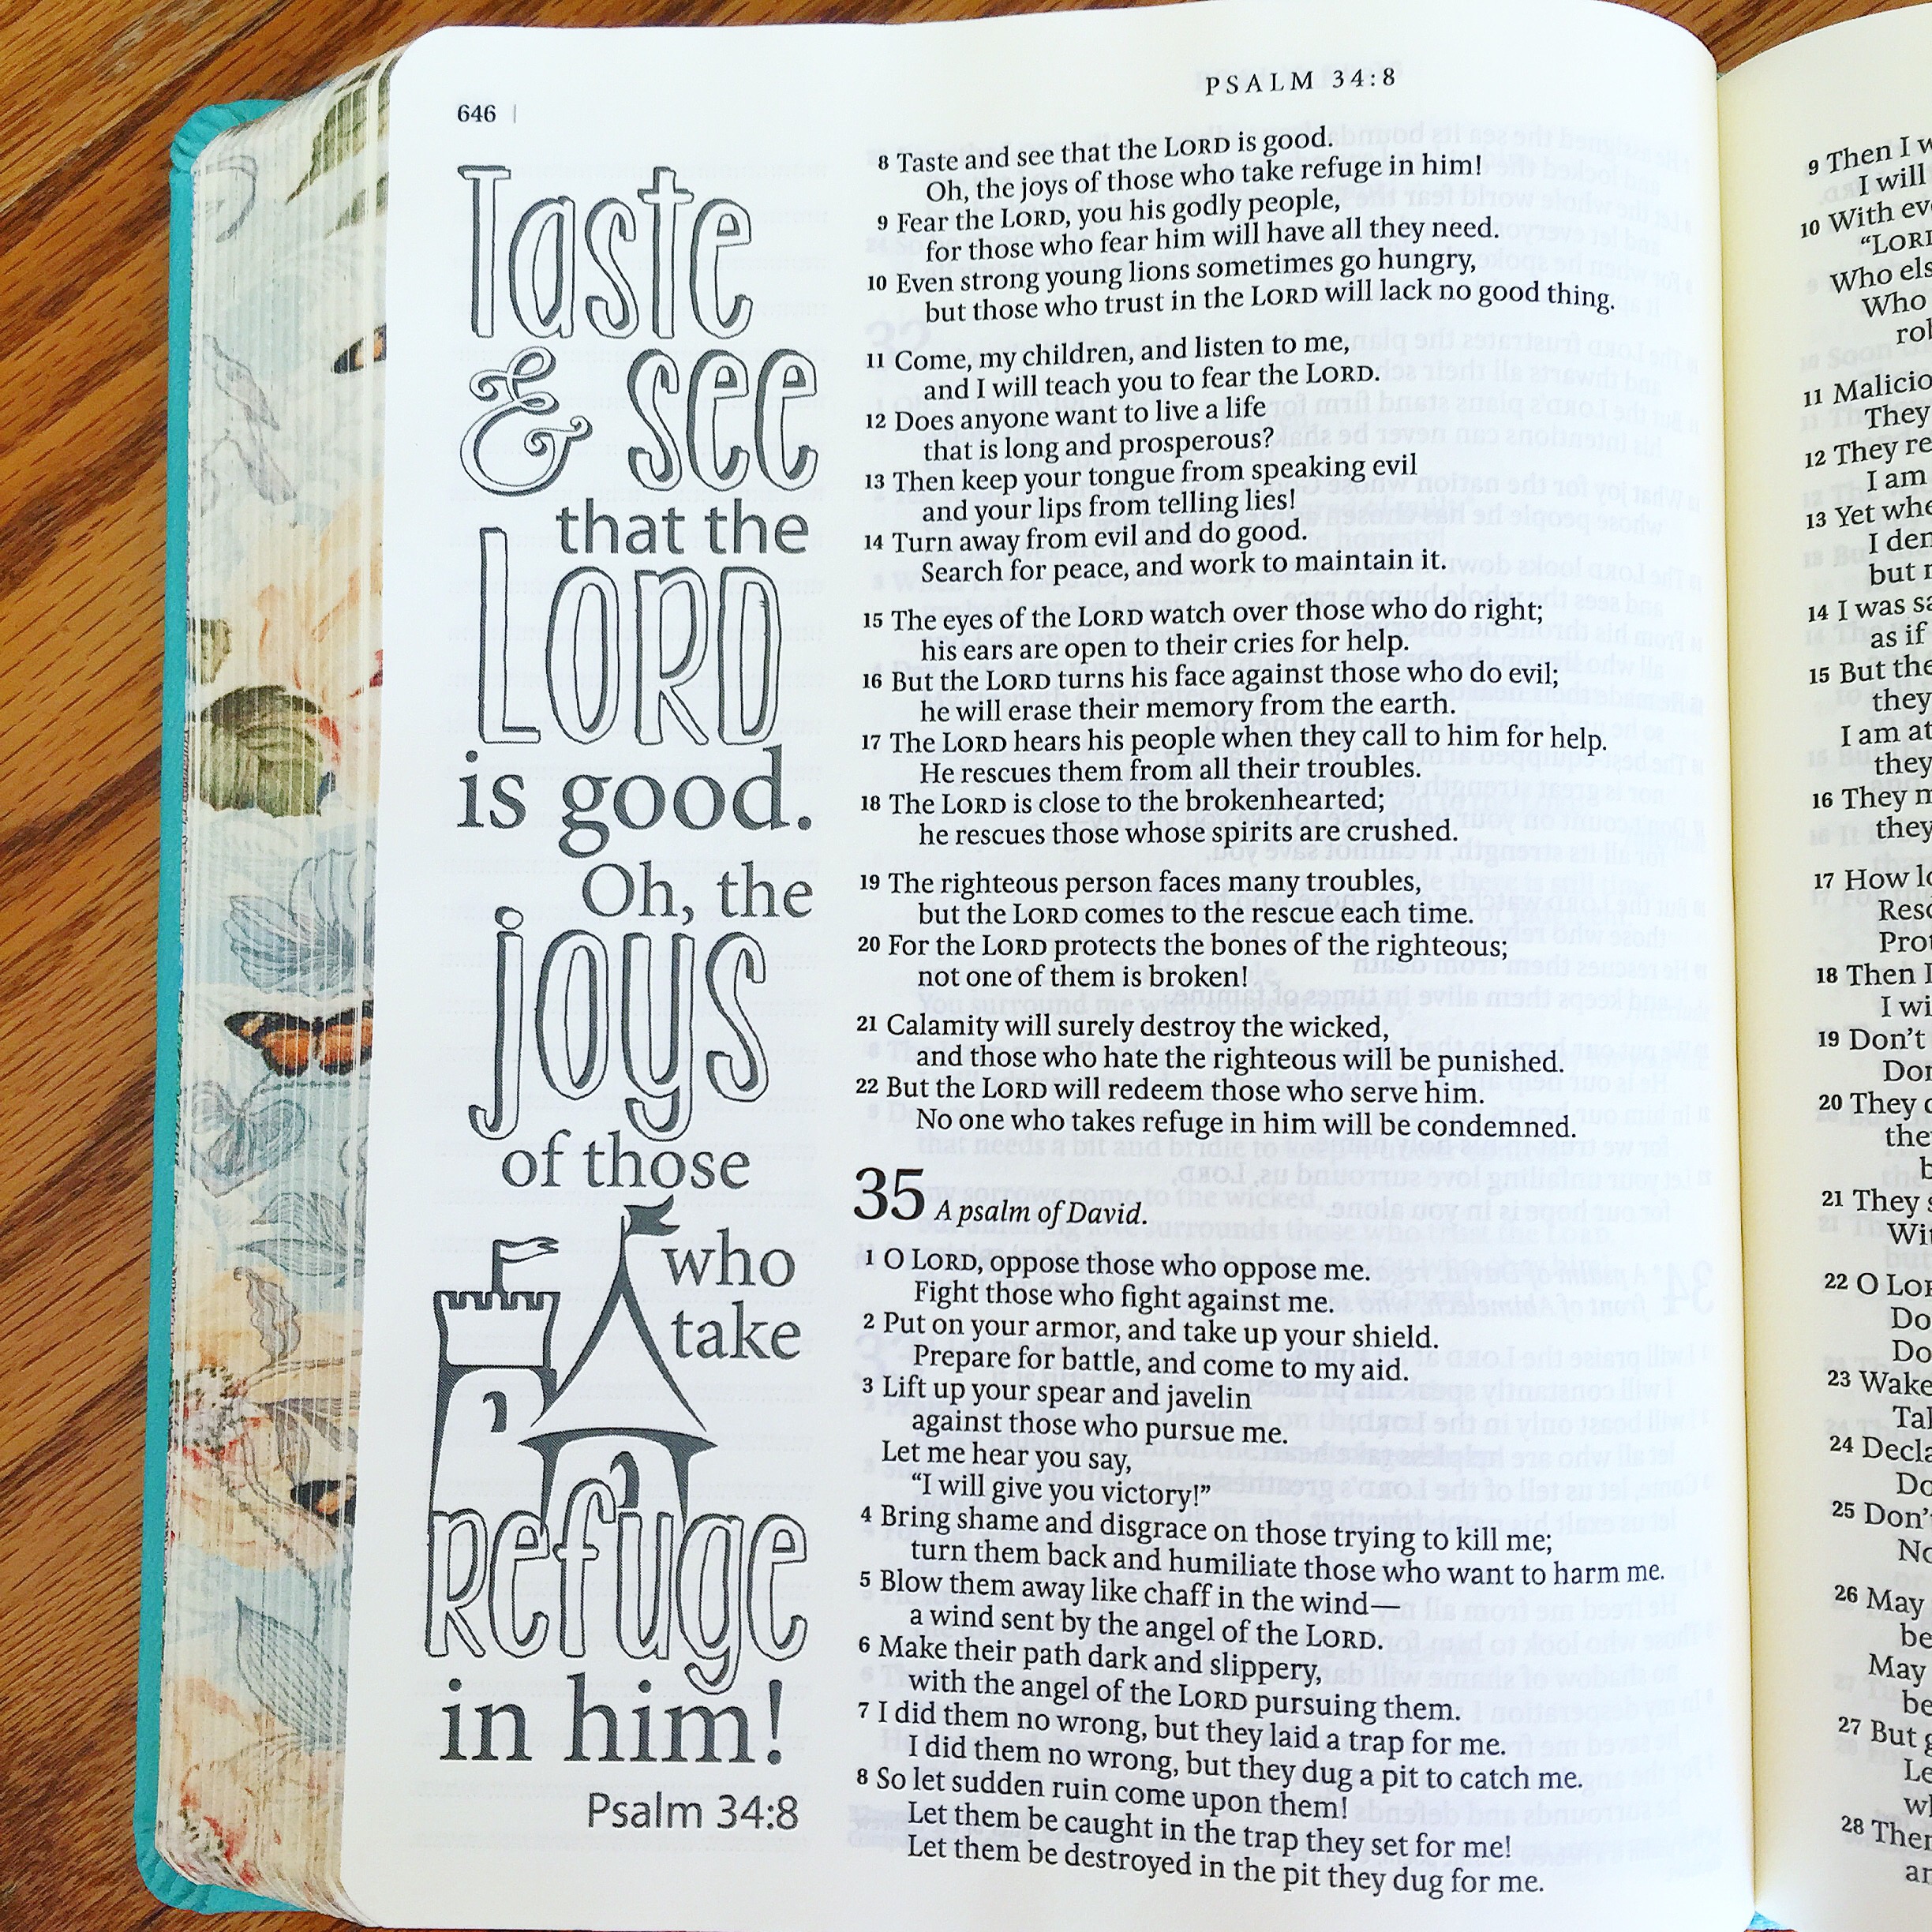 646 |
PSALM 34:8
Taste
& see
that the
LORD
is good.
Oh, the
joys
of those
who
take
refuge
in him!
Psalm 34:8
8 Taste and see that the LORD is good.
Oh, the joys of those who take refuge in him!
9 Fear the LORD, you his godly people,
for those who fear him will have all they need.
10 Even strong young lions sometimes go hungry,
but those who trust in the LORD will lack no good thing.
11 Come, my children, and listen to me,
and I will teach you to fear the LORD.
12 Does anyone want to live a life
that is long and prosperous?
13 Then keep your tongue from speaking evil
and your lips from telling lies!
14 Turn away from evil and do good.
Search for peace, and work to maintain it.
15 The eyes of the LORD watch over those who do right;
his ears are open to their cries for help.
16 But the LORD turns his face against those who do evil;
he will erase their memory from the earth.
17 The LORD hears his people when they call to him for help.
He rescues them from all their troubles.
18 The LORD is close to the brokenhearted;
he rescues those whose spirits are crushed.
19 The righteous person faces many troubles,
but the LORD comes to the rescue each time.
20 For the LORD protects the bones of the righteous;
not one of them is broken!
21 Calamity will surely destroy the wicked,
and those who hate the righteous will be punished.
22 But the LORD will redeem those who serve him.
No one who takes refuge in him will be condemned.
35 A psalm of David.
1 O LORD, oppose those who oppose me.
Fight those who fight against me.
2 Put on your armor, and take up your shield.
Prepare for battle, and come to my aid.
3 Lift up your spear and javelin
against those who pursue me.
Let me hear you say,
“I will give you victory!”
4 Bring shame and disgrace on those trying to kill me;
turn them back and humiliate those who want to harm me.
5 Blow them away like chaff in the wind—
a wind sent by the angel of the LORD.
6 Make their path dark and slippery,
with the angel of the LORD pursuing them.
7 I did them no wrong, but they laid a trap for me.
I did them no wrong, but they dug a pit to catch me.
8 So let sudden ruin come upon them!
Let them be caught in the trap they set for me!
Let them be destroyed in the pit they dug for me.
9 Then I
I will
10 With
“LORD
Who
Who
11
They
12 They
I am
13 Yet
I
but
14 I was
as if
15 But
they
I am
they
16 They
they
17 How
18 Then I
I
19 Don't
20 They
21 They
22 O
Do
Do
23 Wake
24
25 Don't
26 May
May
27 But
28